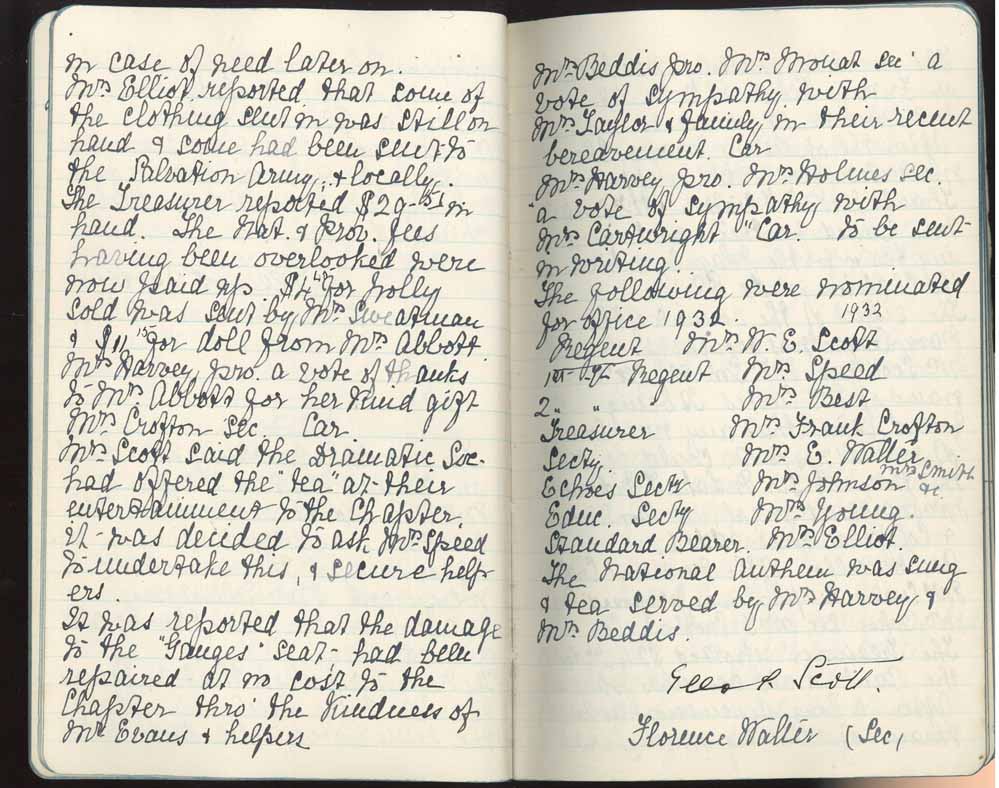 in case of need later on.
Mrs Elliot reported that some of
the clothing sent in was still on
hand & some had been sent to
the Salvation Army, & locally.
The Treasurer reported $29-51 in
hand. The Nat. & Prov. fees
having been overlooked were
now paid up. $4 for holly
sold was sent by Mrs Sweatman
& $11 15 for doll from Mrs Abbott.
Mrs Harvey pro. a vote of thanks
to Mrs Abbott for her kind gift
Mrs Crofton Sec. Car.
Mrs Scott said the Dramatic Soc.
had offered the "tea" at their
entertainment to the Chapter.
it was decided to ask Mrs Speed
to undertake this, & secure help
ers.
It was reported that the damage
to the "Ganges" seat had been
repaired at no cost to the
Chapter thro the kindness of
Mr Evans & helpers
Mrs Beddis pro. Mrs Mouat sec a
vote of sympathy with
Mrs Taylor & family in their recent
bereavement. Car
Mrs Harvey pro. Mrs Holmes sec.
"a vote of sympathy with
Mrs Cartwright" Car. To be sent
in writing.
The following were nominated
for office 1932. 1932
Regent Mrs W. E. Scott
1st V Regent Mrs Speed
2 " " Mrs Best
Treasurer Mrs Frank Crofton
Secty. Mrs E. Walter.
Echoes Secty Mrs Johnson Mrs Smith
Educ. Secty Mrs Young.
Standard Bearer. Mrs Elliot.
The National Anthem was sung
& tea served by Mrs Harvey &
Mrs Beddis.
Scott.
Florence Walter (Sec)